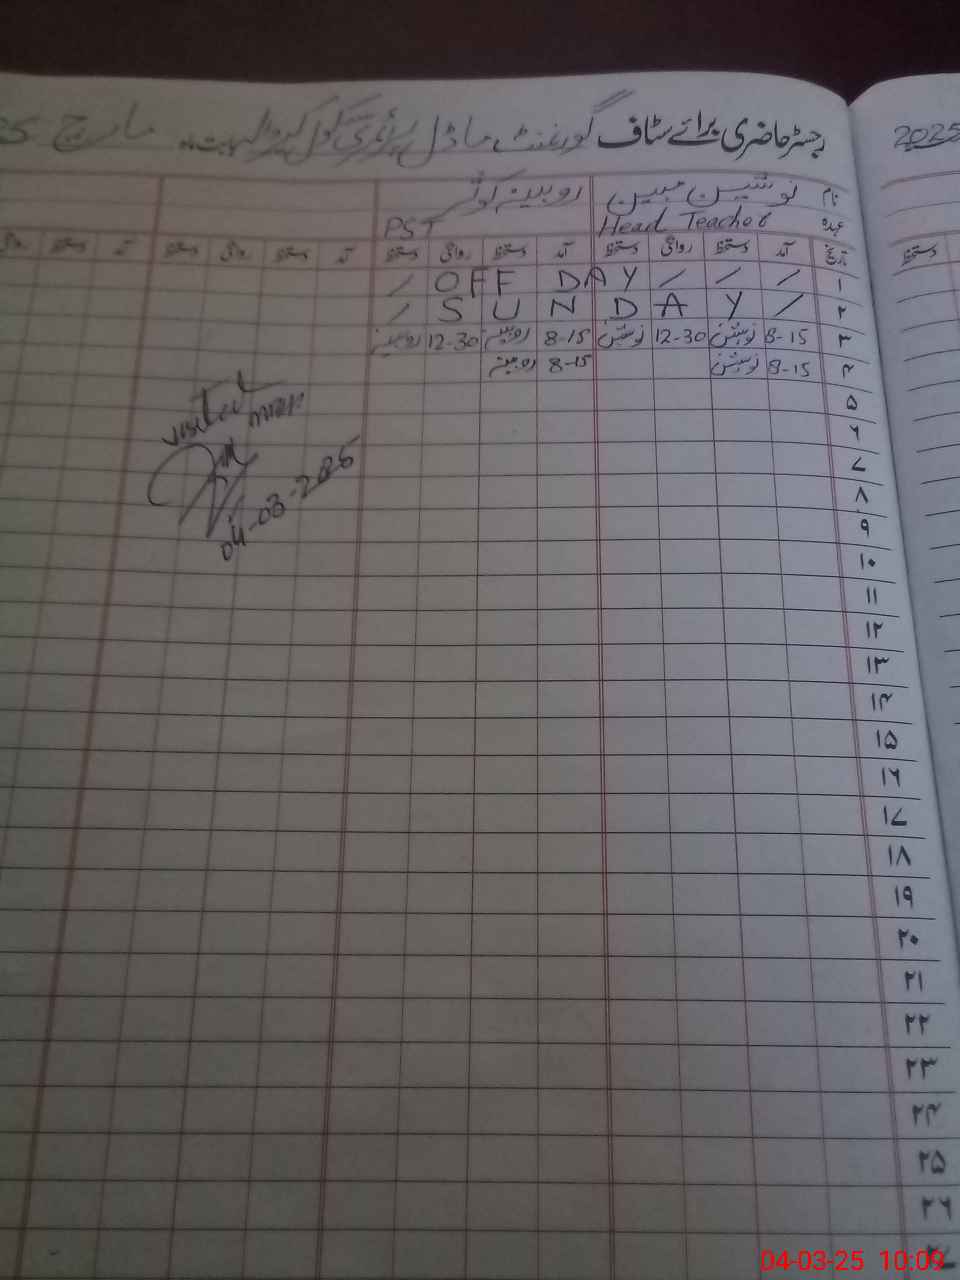 رجسٹر حاضری برائے سٹاف گورنمنٹ ماڈل پرائمری سکول مارچ
2025
نام نوشین مبین روبینہ کوثر
عہدہ Head Teacher PST
تاریخ آمد دستخط روانگی دستخط آمد دستخط روانگی دستخط آمد دستخط روانگی دستخط آمد دستخط روانگی
دستخط
۱ / / / OFF DAY /
۲ / SUNDAY /
۳ 8-15 نوشین 12-30 نوشین 8-15 روبینہ 12-30 روبینہ
۴ 8-15 نوشین 8-15 روبینہ
visited
04-03-2025
۵
۶
۷
۸
۹
۱۰
۱۱
۱۲
۱۳
۱۴
۱۵
۱۶
۱۷
۱۸
۱۹
۲۰
۲۱
۲۲
۲۳
۲۴
۲۵
۲۶
04-03-25 10:09